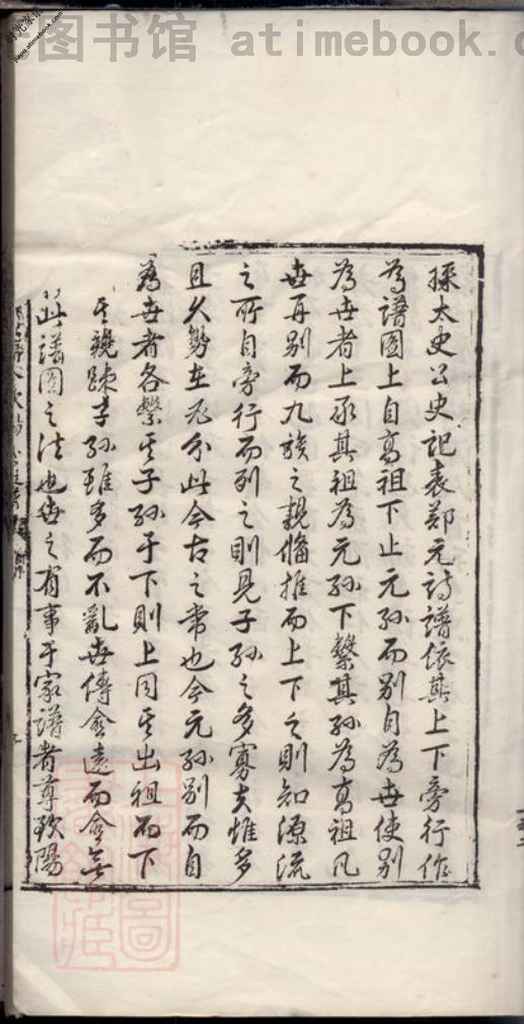 图书馆 atimebook.c
採太史公史記表鄭元詩譜依其上下旁行作
為譜圖上自高祖下止元孫而別自為世使別
為世者上承其祖為元孫下繫其孫為高祖凡
世再別而九族之親備推而上下之則知源流
之所自旁行而列之則見子孫之多寡夫惟多
且久勢在必分此今古之常也今元孫別而自
為世者各繫其子孫于下則上同其出祖而下
其親踈李孫雖多而不亂世傳愈遠而愈無
此譜圖之法也世之有事于家譜者尊欧陽